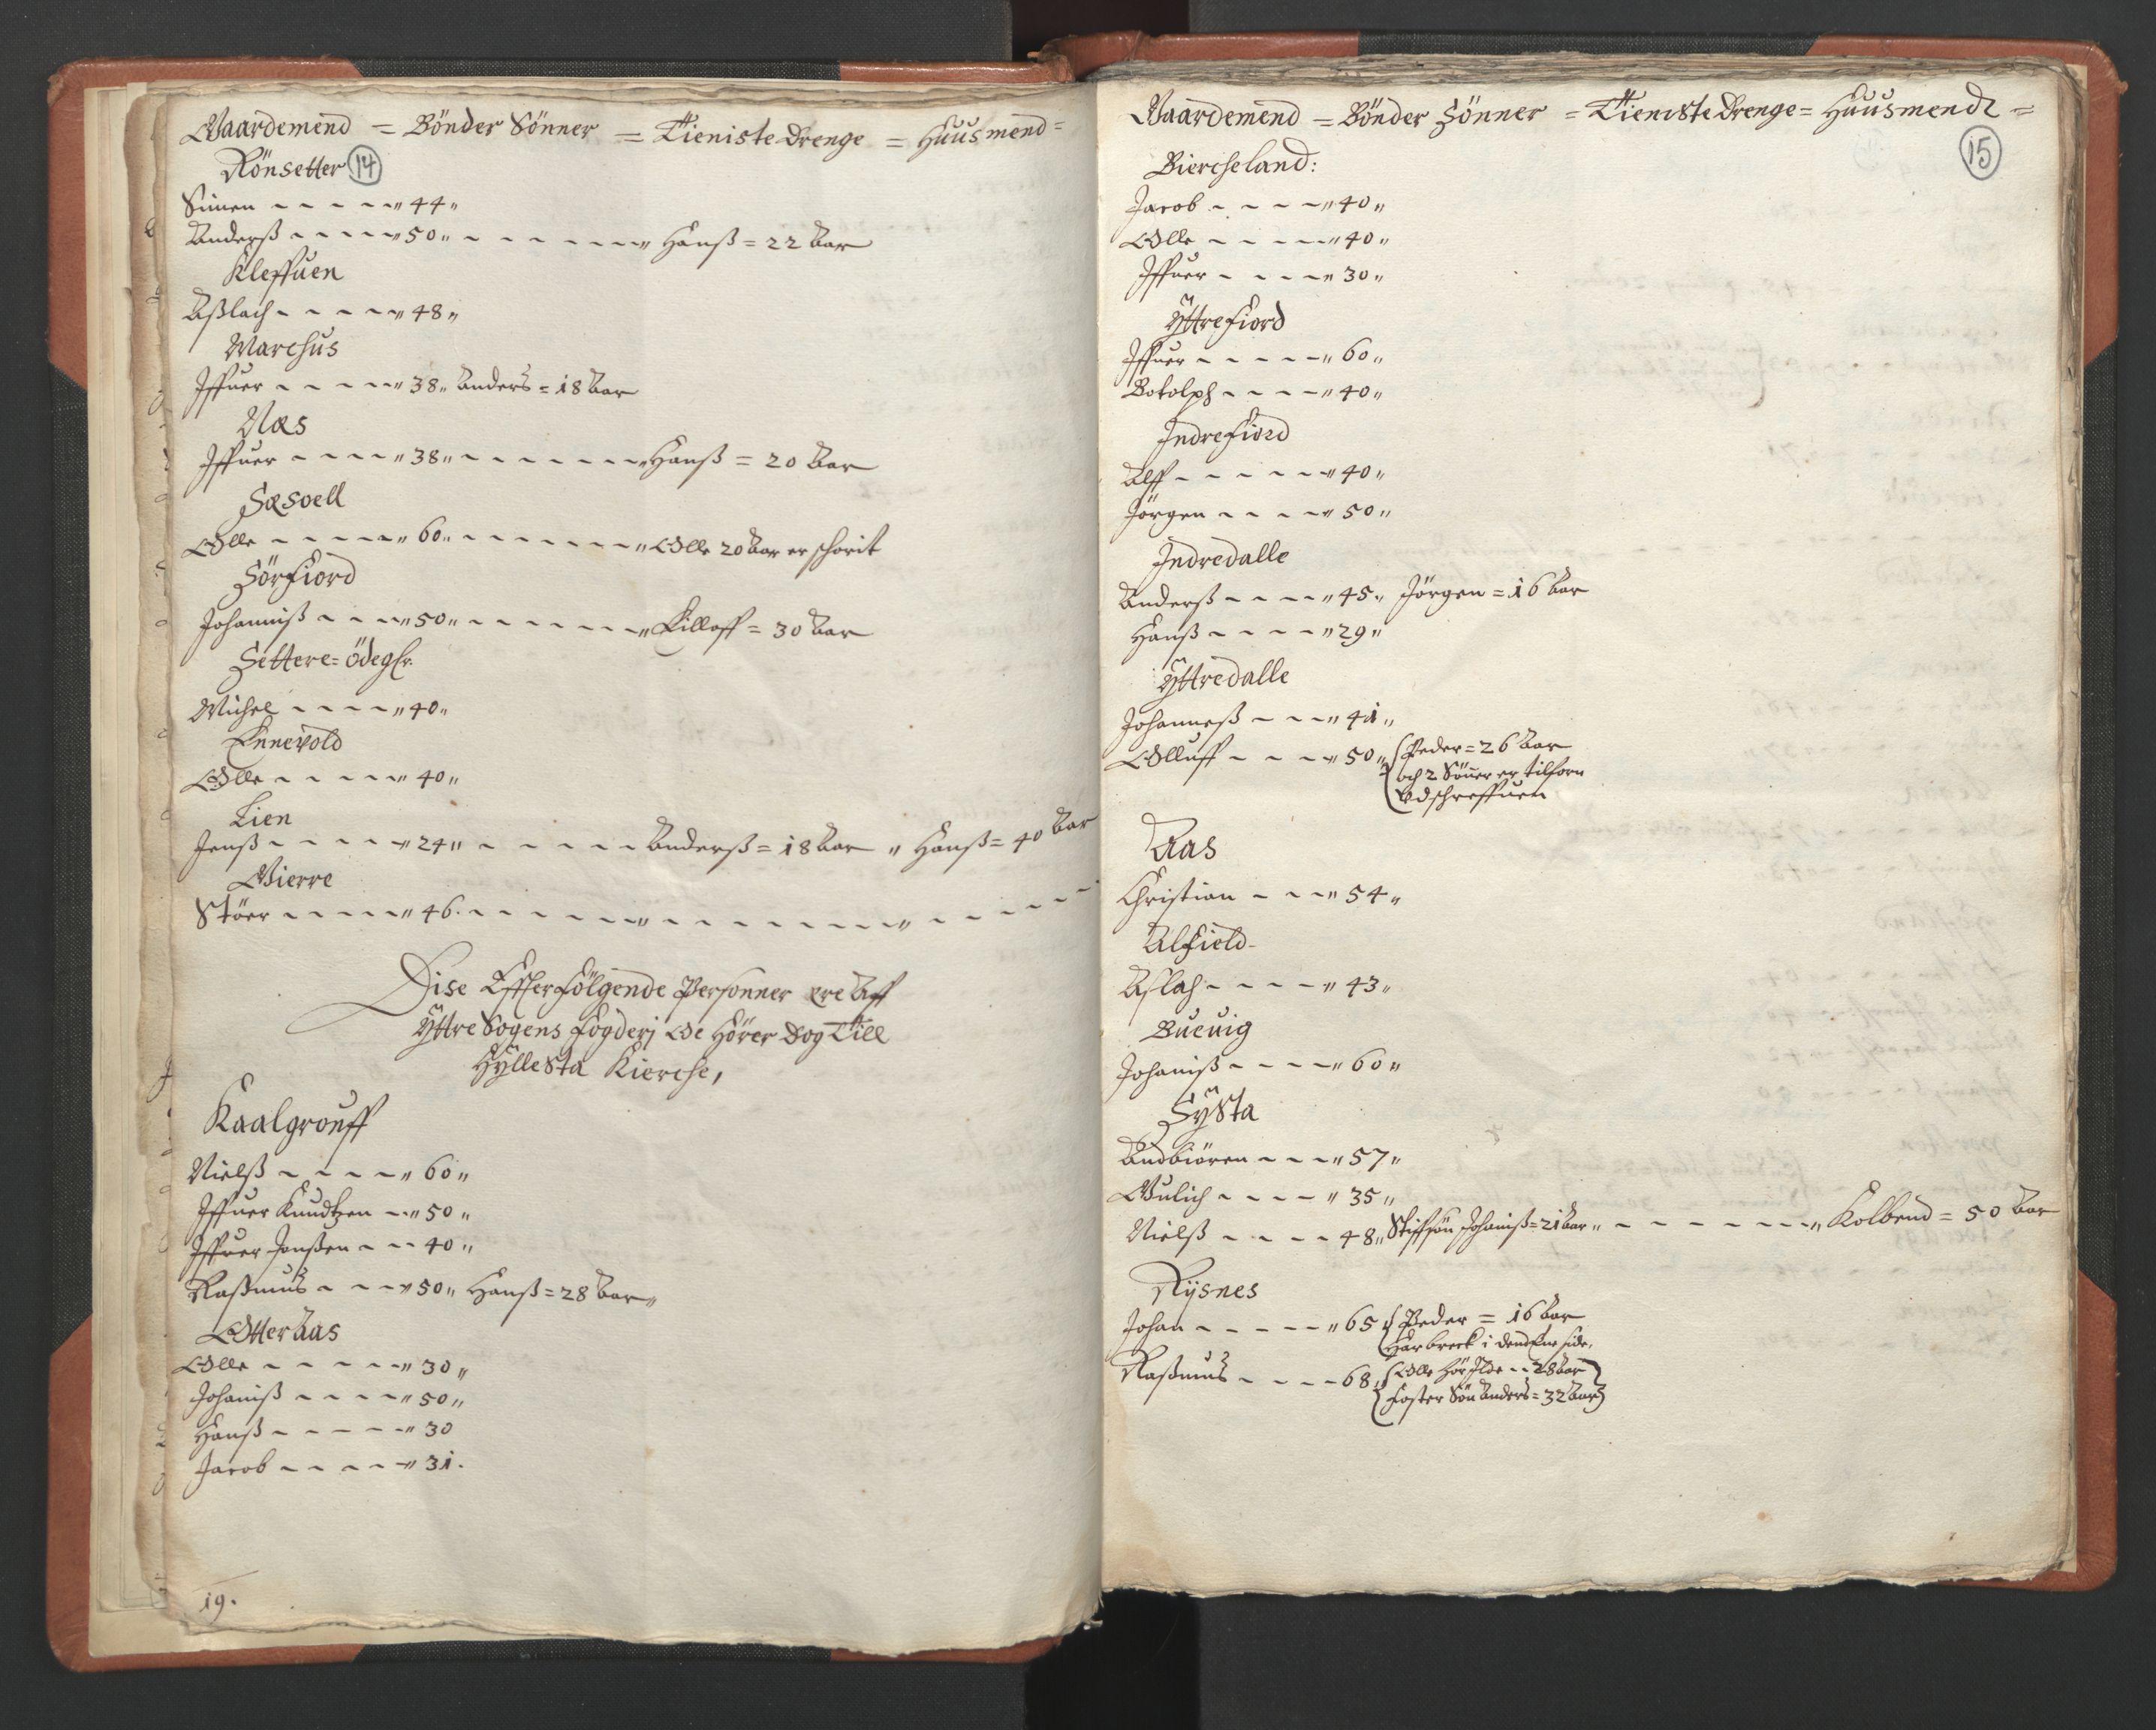 Gaardemend = Bönder Sönner = Tieniste Drenge = Huusmend =
Rönsetter 14
Simen - - - - - „ 44 „
Anderß - - - - „ 50 „ - - - - - - - „ Hanß = 22 Aar
Kleffuen
Aßlach - - - - - „ 48 „
Marchus
Iffuer - - - - - „ 38 „ Anders = 18 Aar
Næs
Iffuer - - - - „ 38 „ - - - - - - - „ Hanß = 20 Aar
Sæsoell
Olle - - - - - „ 60 „ - - - - - - - „ Olle 20 Aar er schorit
Sörfiord
Johanniß - - - „ 50 „ - - - - - - - „ Killoff = 30 Aar
Settere = ödegr.
Michel - - - - „ 40 „
Ennevold
Olle - - - - - „ 40 „
Lien
Jenß - - - - - „ 24 „ - - - - - - Anderß = 18 Aar „ Hanß = 40 Aar
Vierre
Stöer - - - - - „ 46 . - - - - - - - „ - - - - - - - „ - - - - -
Dise Effterfölgende Personner ere Aff
Yttre Sogens fogderj Oc Hörer Dog Till
Hyllesta Kierche,
Kaalgrouff
Nielß - - - - - „ 60 „
Iffuer Knudtzen - „ 50 „
Iffuer Jenßen - - - 40 „
Raßmus - - - „ 50 „ Hanß = 28 Aar „
Otteraas
Olle - - - - - „ 30 „
Johaniß - - - - „ 50 „
Hanß - - - - - „ 30
Jacob - - - - - „ 31 .
19.
Gaardemend = Bönder Sönner = Tieniste Drenge = Huusmendt =
15
Biercheland:
Jacob - - - - - „ 40 „
Olle - - - - - „ 40 „
Iffuer - - - - „ 30 „
Yttrefiord
Iffuer - - - - - „ 60 „
Botolph - - - - „ 40 „
Indrefiord
Alff - - - - - „ 40 „
Jörgen - - - - „ 50 „
Indredalle
Anderß - - - - „ 45 „ Jörgen = 16 Aar
Hanß - - - - „ 29 „
Yttredalle
Johanneß - - - „ 41 „
Olluff - - - - „ 50 „ Peder = 26 Aar
och 2 Söner er tilforn
Udschreffuen
Aas
Christian - - - „ 54 „
Alfield -
Aslach - - - - „ 43 „
Bueuig
Johaniß - - - - „ 60 „
Systa
Andbiören - - - „ 57 „
Gulich - - - - „ 35 „
Nielß - - - - 48 „ Stiffsön Johaniß = 21 Aar „ - - - - - - - „ Kolbend = 50 Aar
Rysnes
Johan - - - - - „ 65 „ Peder = 16 Aar
Har breck i dend Ene side,
Raßmus - - - - 68 „ Olle - - 28 Aar
Foster Sön Anders = 32 Aar